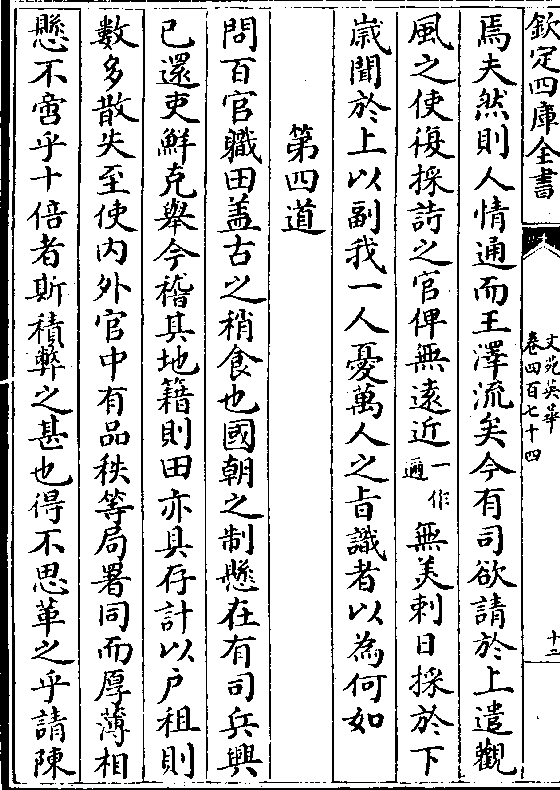 欽定四庫全書
文苑英華
卷四百七十四
十二
焉夫然則人情通而王澤流矣今有司欲請於上遣觀
風之使復採詩之官俾無遠近一作邇無美刺日採於下
歲聞於上以副我一人憂萬人之旨識者以為何如
第四道
問百官職田盖古之稍食也國朝之制懸在有司兵興
已還吏鮮克舉今稽其地籍則田亦具存計以戶租則
數多散失至使內外官中有品秩等局署同而厚薄相
懸不啻乎十倍者斯積弊之甚也得不思革之乎請陳